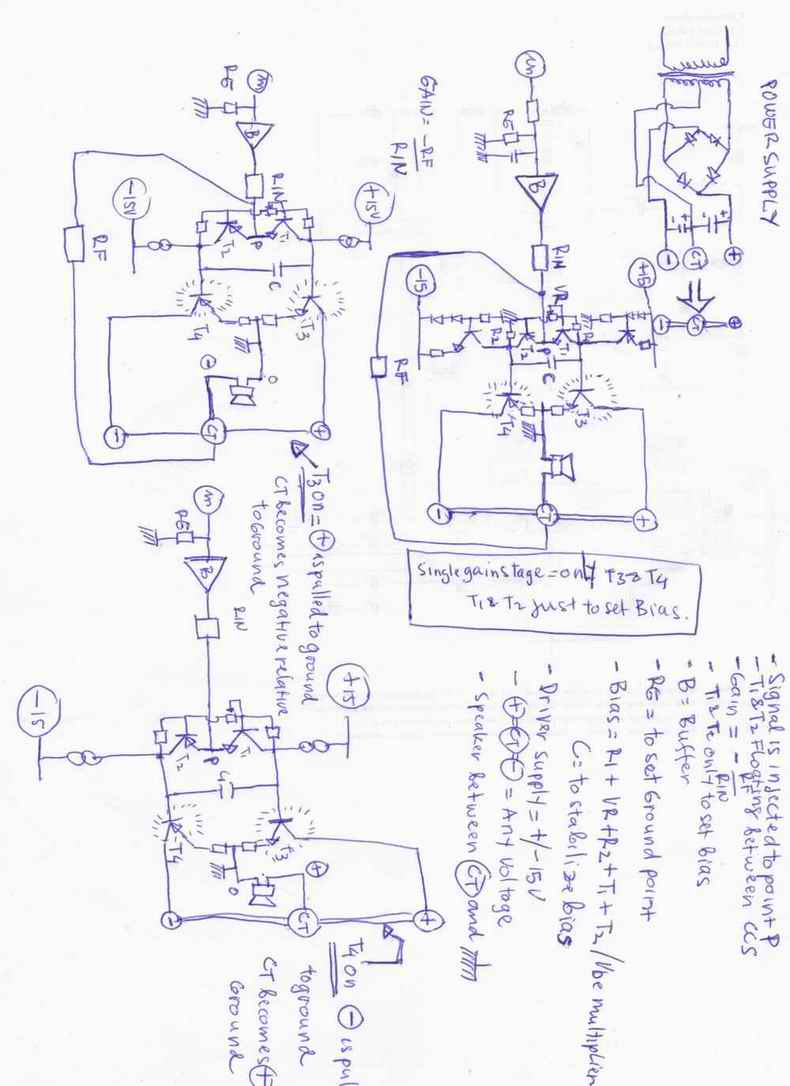 POWER SUPPLY
CT
+15
-15
in
RG
B
RIN
VR
P
R1
R2
T1
T2
C
RF
T3
T4
CT
Single gain stage = only T3 & T4
T1 & T2 just to set Bias.
GAIN = -RF
RIN
in
RG
B
RIN
+15V
-15V
P
T1
T2
C
RF
T3
T4
O
CT
T3 on = + is pulled to ground
CT becomes negative relative
to Ground
in
RG
B
RIN
+15
-15
P
T1
T2
C
T3
T4
O
CT
T4 on - is pul
to ground
CT becomes +
Ground
- Signal is injected to point P
- T1 & T2 Floating between CCS
- Gain = - RF
RIN
- T1 & T2 only to set bias
- B = Buffer
- RG = to set Ground point
- Bias = R1 + VR + R2 + T1 + T2 / Vbe multiplier
C = to stabilize bias
- Driver supply = +/-15V
- + CT - = Any voltage
- Speaker between CT and